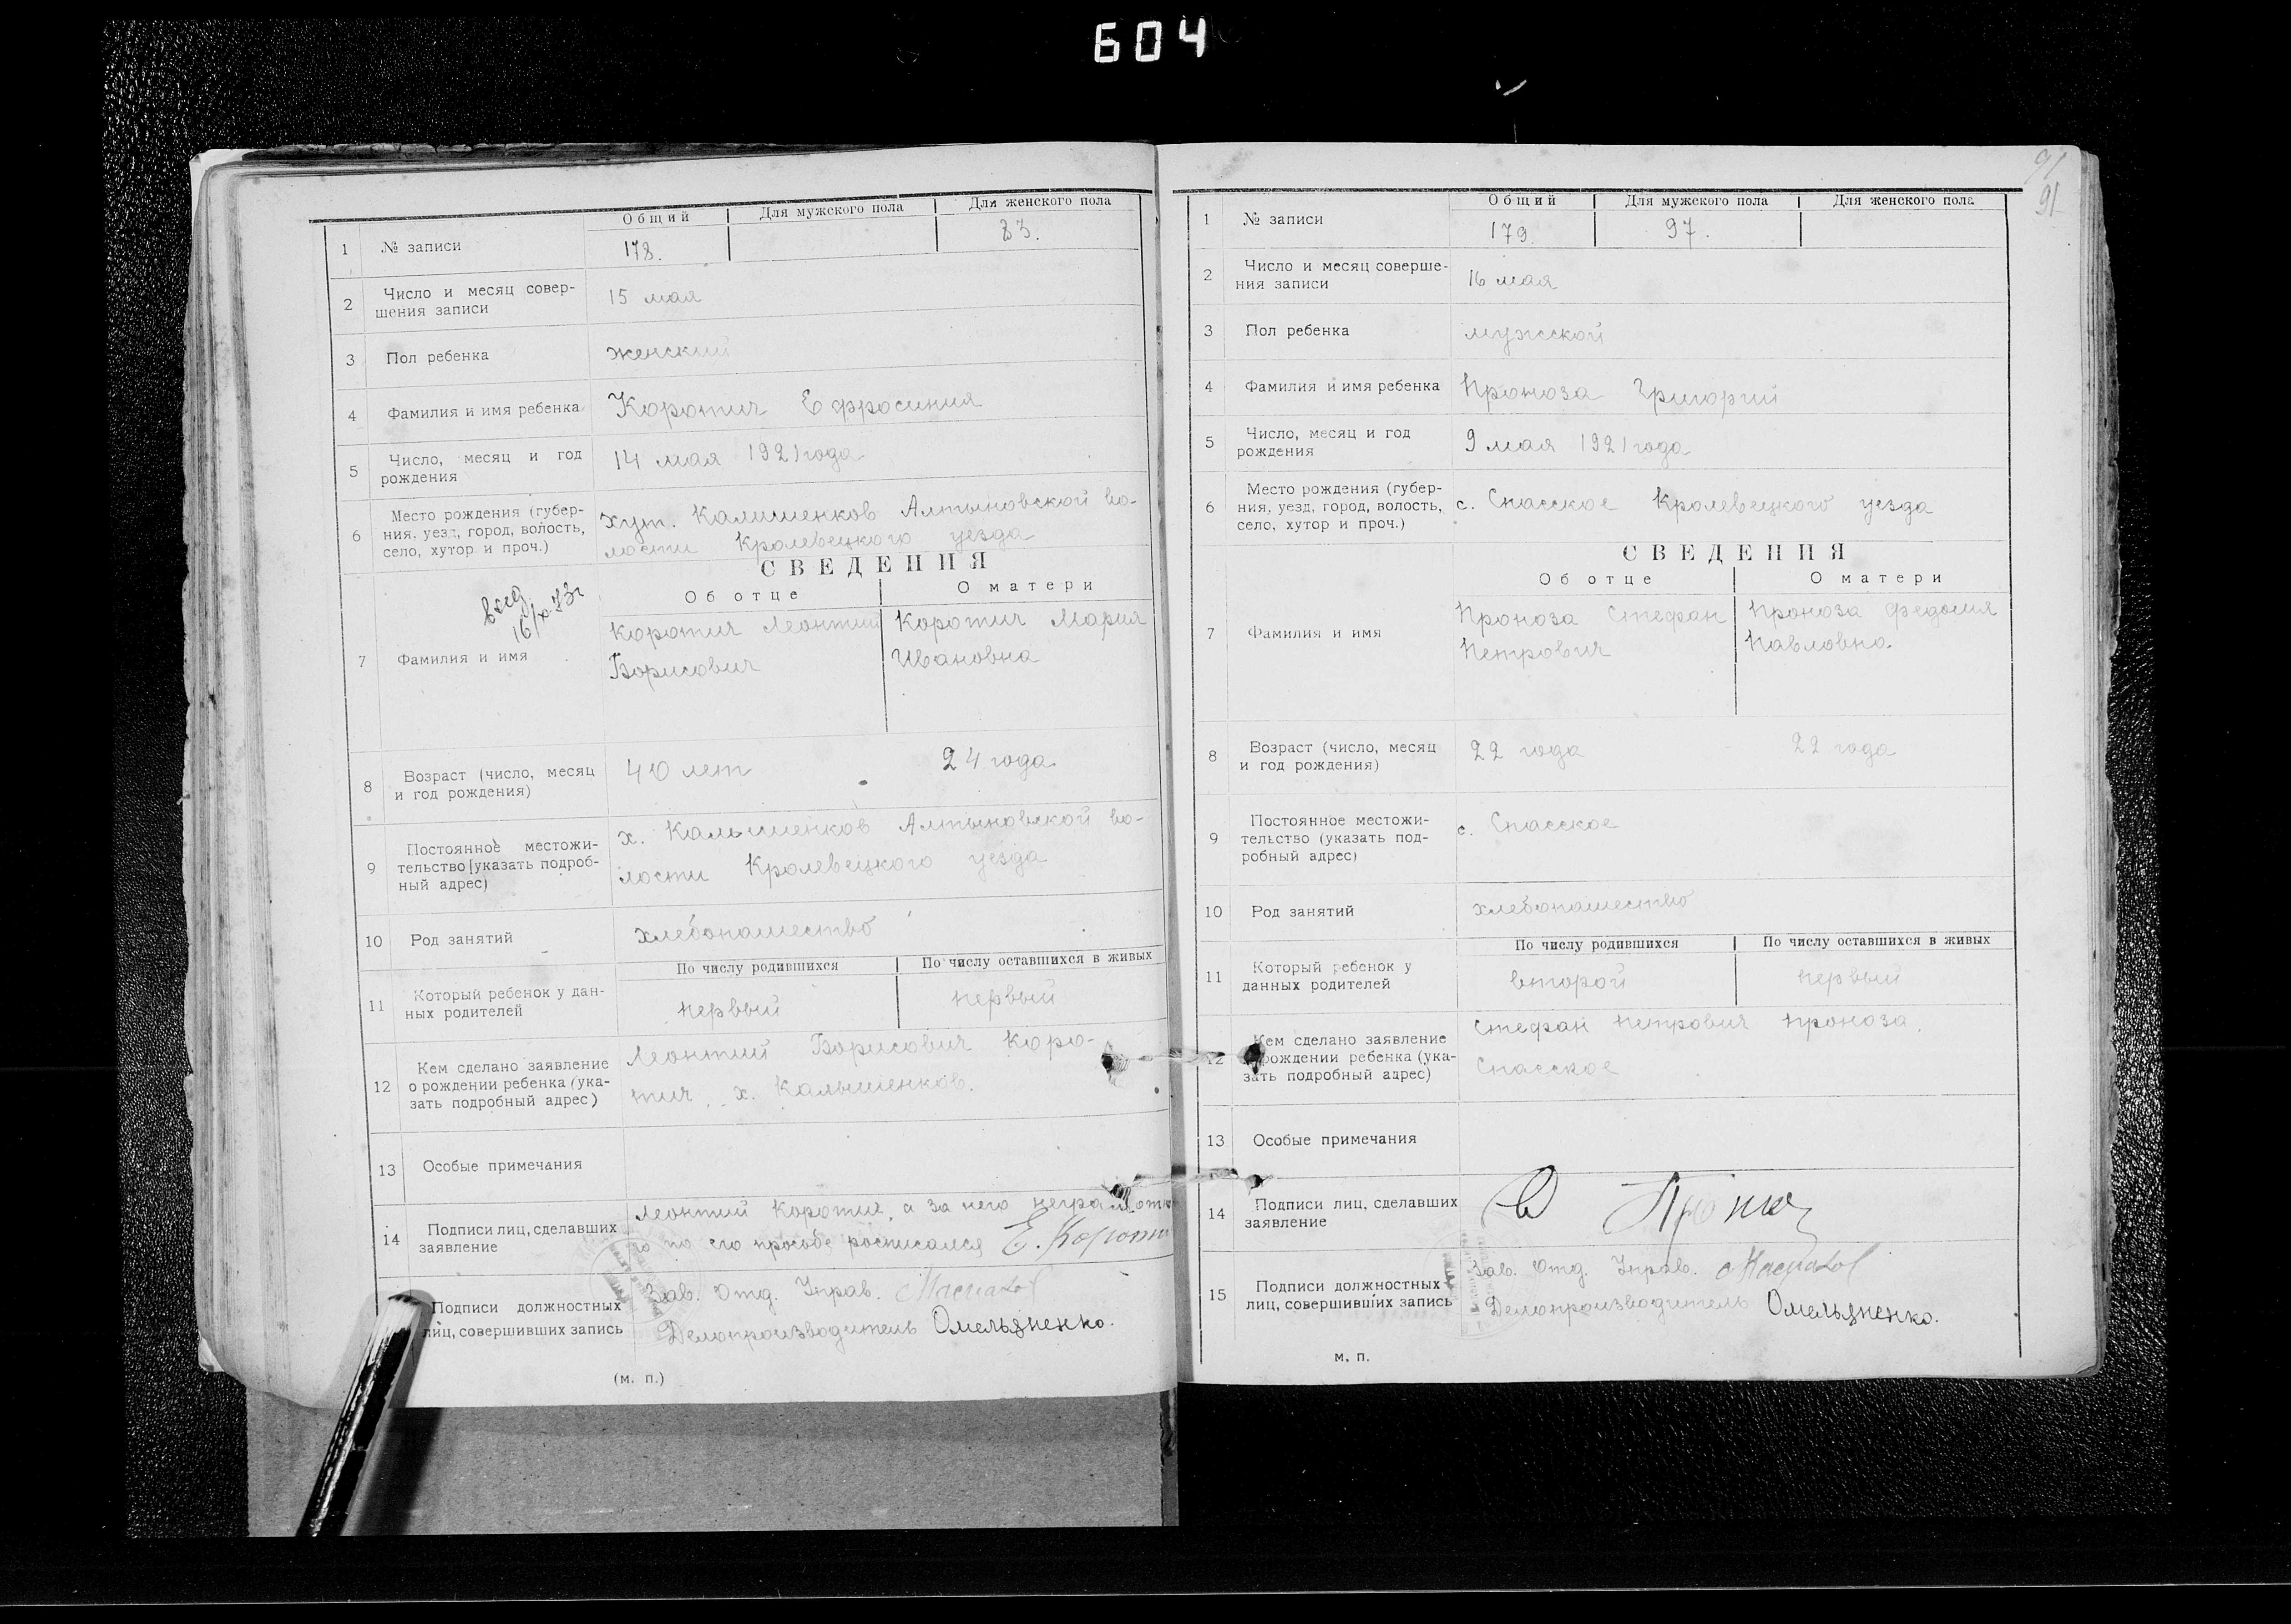 604
Общий Для мужского пола Для женского пола
1 № записи 178. 83.
2 Число и месяц совер-
шения записи 15 мая
3 Пол ребенка женский
4 Фамилия и имя ребенка Коротич Ефросиния
5 Число, месяц и год
рождения 14 мая 1921 года
6 Место рождения (губер-
ния, уезд, город, волость,
село, хутор и проч.)
хут. Калишенков Алтыновской во-
лости Кролевецкого уезда
СВЕДЕНИЯ
Об отце О матери
16/X 73г
7 Фамилия и имя
Коротич Леонтий
Борисович
Коротич Мария
Ивановна
8 Возраст (число, месяц
и год рождения) 40 лет 24 года
9 Постоянное местожи-
тельство [указать подроб-
ный адрес)
х. Калышенков Алтыновской во-
лости Кролевецкого уезда
10 Род занятий хлебопашество
По числу родившихся По числу оставшихся в живых
11 Который ребенок у дан-
ных родителей первый первый
12 Кем сделано заявление
о рождении ребенка (ука-
зать подробный адрес)
Леонтий Борисович Коро-
тич, х. Калышенков.
13 Особые примечания
14 Подписи лиц, сделавших
заявление
Леонтий Коротич, а за него неграмотно
го по его прособе росписался Е. Короти
15 Подписи должностных
лиц, совершивших запись
Зав. Отд. Управ.
Делопроизводитель Омельяненко.
(м. п.)
91
91
Общий Для мужского пола Для женского пола
1 № записи 179. 97.
2 Число и месяц соверше-
ния записи 16 мая
3 Пол ребенка мужской
4 Фамилия и имя ребенка Проноза Григорий
5 Число, месяц и год
рождения 9 мая 1921 года
6 Место рождения (губер-
ния, уезд, город, волость,
село, хутор и проч.)
с. Спасское Кролевецкого уезда
СВЕДЕНИЯ
Об отце О матери
7 Фамилия и имя
Проноза Стефан
Петрович
Проноза Федосия
Павловна.
8 Возраст (число, месяц
и год рождения) 22 года 22 года
9 Постоянное местожи-
тельство (указать под-
робный адрес) с. Спасское
10 Род занятий хлебопашество
По числу родившихся По числу оставшихся в живых
11 Который ребенок у
данных родителей второй первый
12 Кем сделано заявление
о рождении ребенка (ука-
зать подробный адрес)
Стефан Петрович Проноза.
Спасское
13 Особые примечания
14 Подписи лиц, сделавших
заявление
15 Подписи должностных
лиц, совершивших запись
Зав. Отд. Управ.
Делопроизводитель Омельяненко.
м. п.